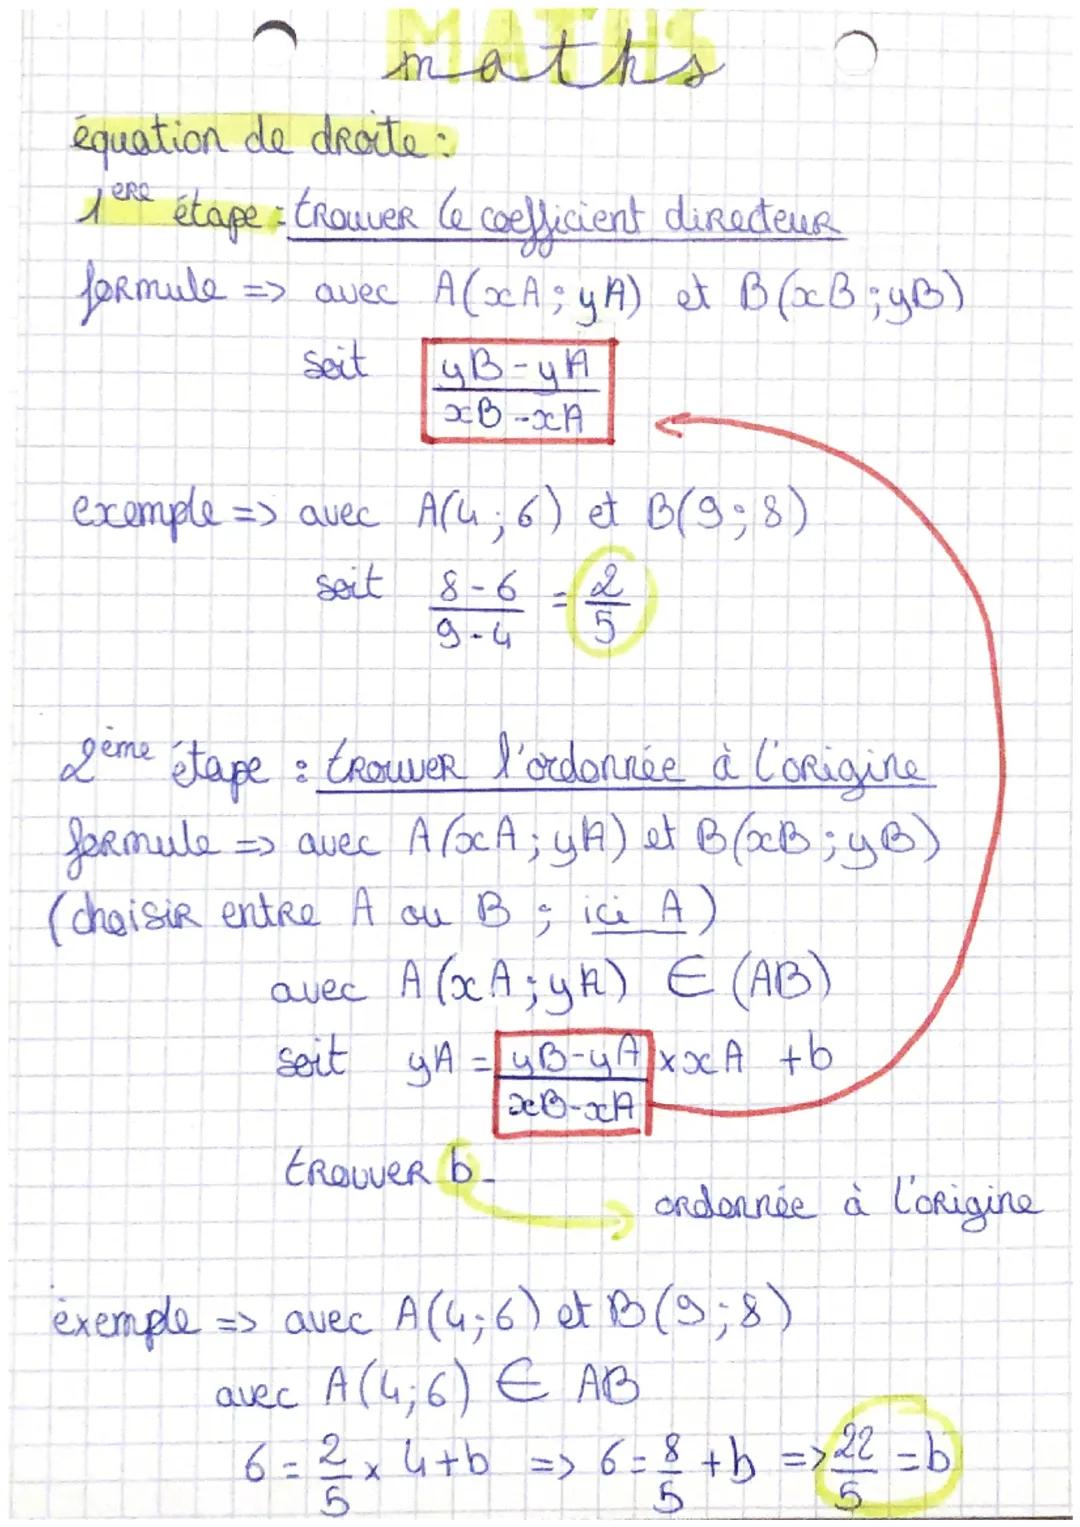 MATHS
maths
équation de droite :
1ERE étape : trouver le coefficient directeur
formule => avec A(xA ; yA) et B(xB ; yB)
soit yB - yA / xB - xA
exemple => avec A(4 ; 6) et B(9 ; 8)
soit 8 - 6 / 9 - 4 = 2/5
2ème étape : trouver l'ordonnée à l'origine
formule => avec A(xA ; yA) et B(xB ; yB)
(choisir entre A ou B ; ici A)
avec A(xA ; yA) ∈ (AB)
soit yA = yB - yA / xB - xA × xA + b
trouver b
ordonnée à l'origine
exemple => avec A(4 ; 6) et B(9 ; 8)
avec A(4 ; 6) ∈ AB
6 = 2/5 × 4 + b => 6 = 8/5 + b => 22/5 = b